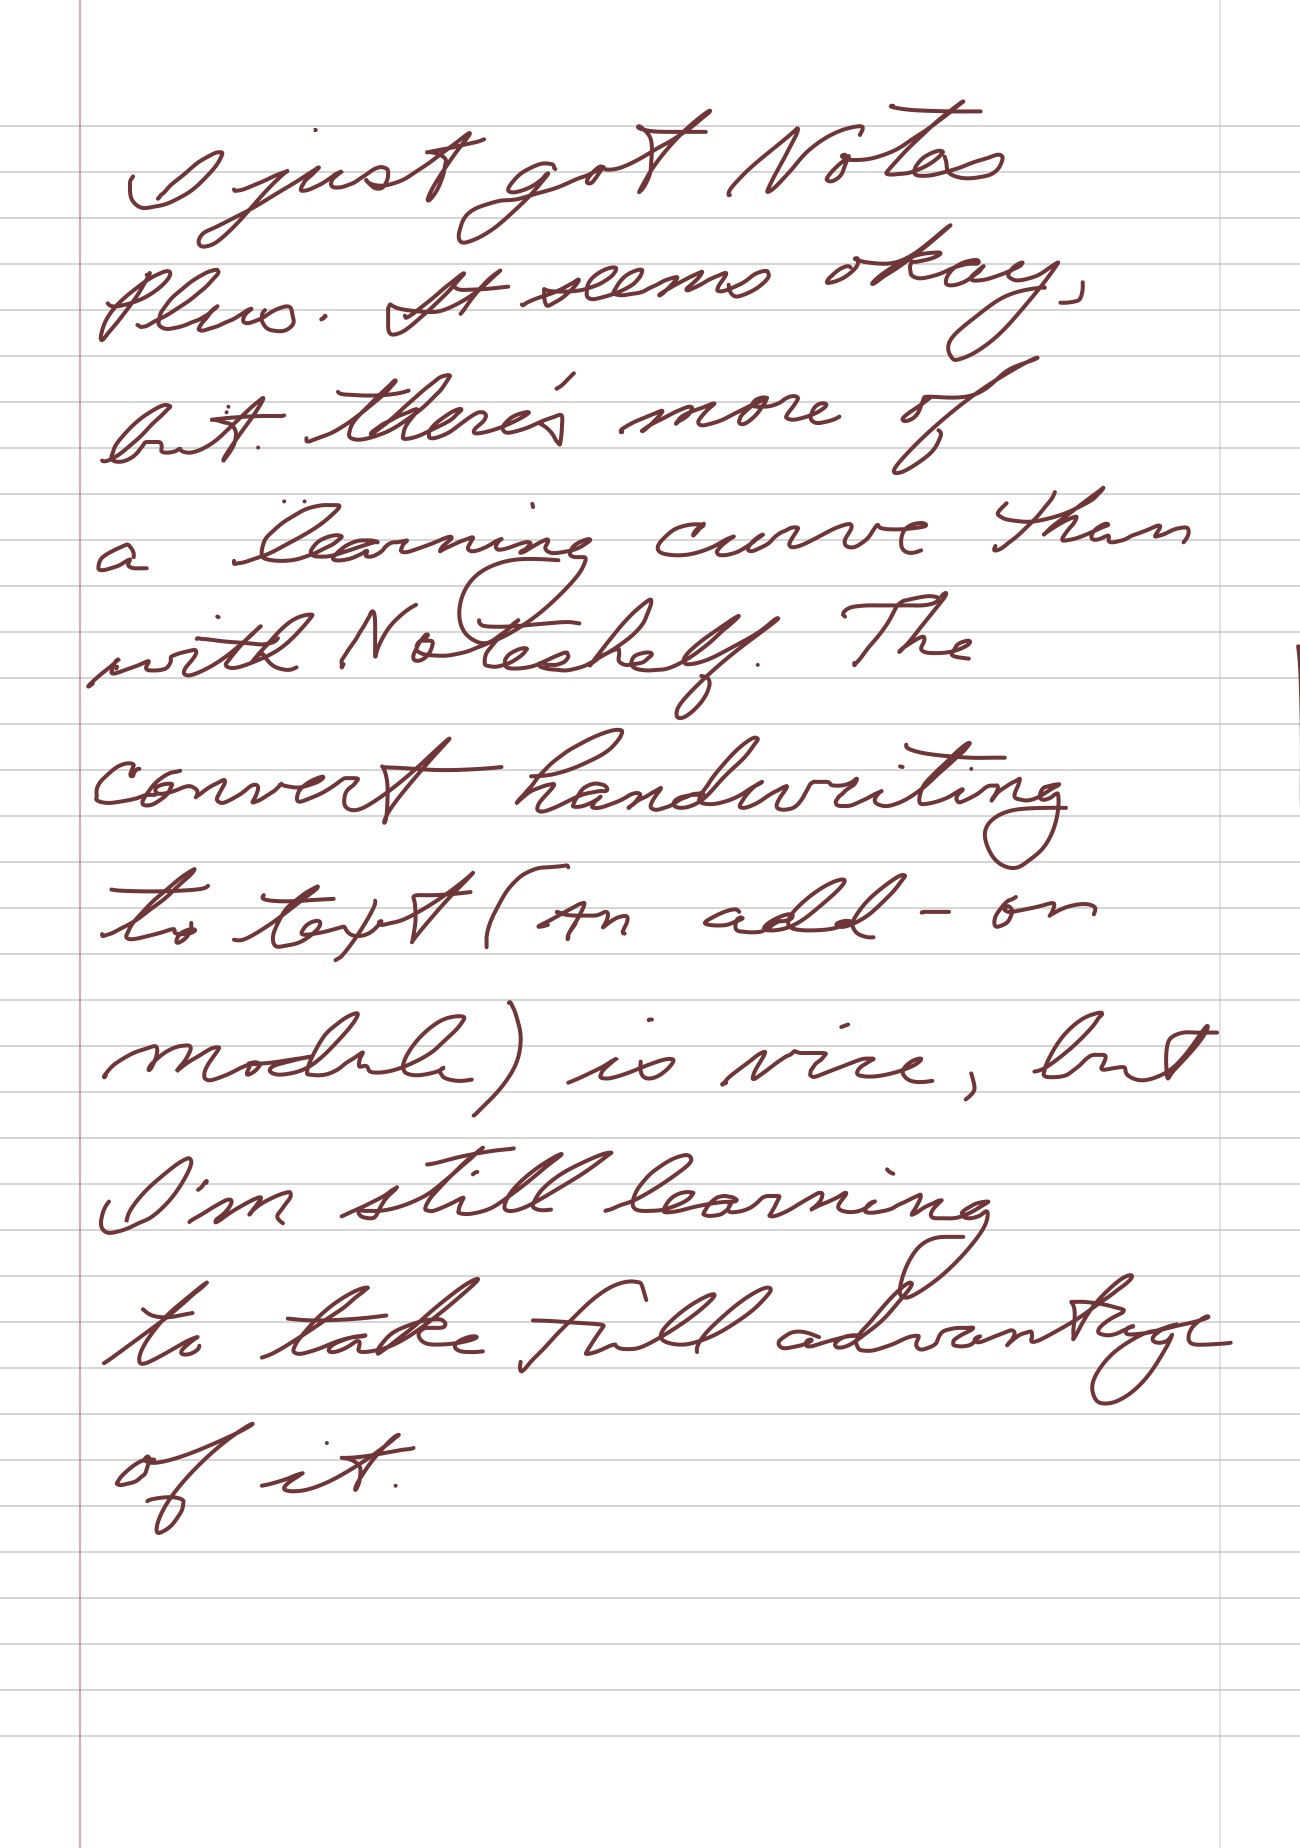 I just got Notes
Plus. It seems okay,
but there's more of
a learning curve than
with Noteshelf. The
convert handwriting
to text (an add-on
module) is nice, but
I'm still learning
to take full advantage
of it.